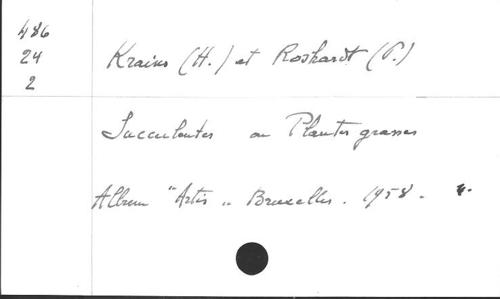 486
24
2
Krains (H.) et Roshardt (P.)
Succulentes ou Plantes grasses
Album "Artis" Bruxelles. 1958.